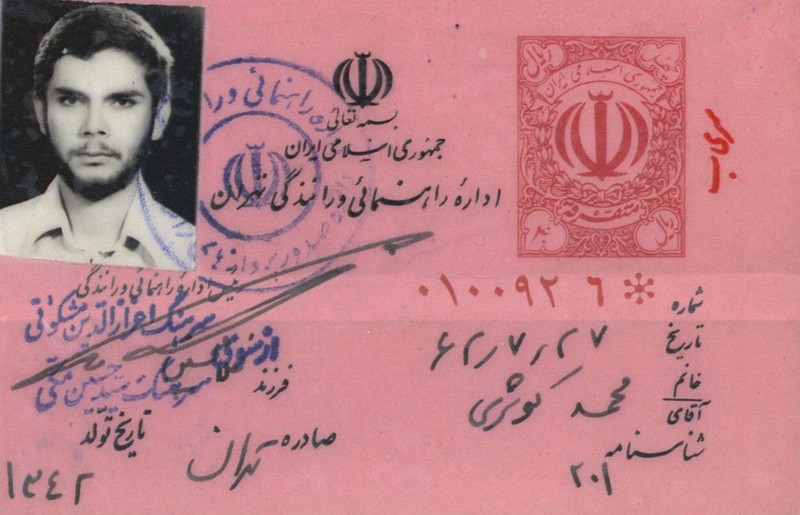 بسمه تعالی
جمهوری اسلامی ایران
اداره راهنمائی و رانندگی تهران
ریال
جمهوری اسلامی ایران
متفرقه
ریال
سری ب
شماره ۰۱۰۰۹۲۶
تاریخ ۶۲/۷/۲۷
خانم
آقای محمد کوثری
فرزند
شناسنامه ۲۰۱ صادره تهران
تاریخ تولد ۱۳۴۲
رئیس اداره راهنمائی و رانندگی
سرهنگ اعزازالدین مشکوتی
از سوی
سرهنگ سید حسین